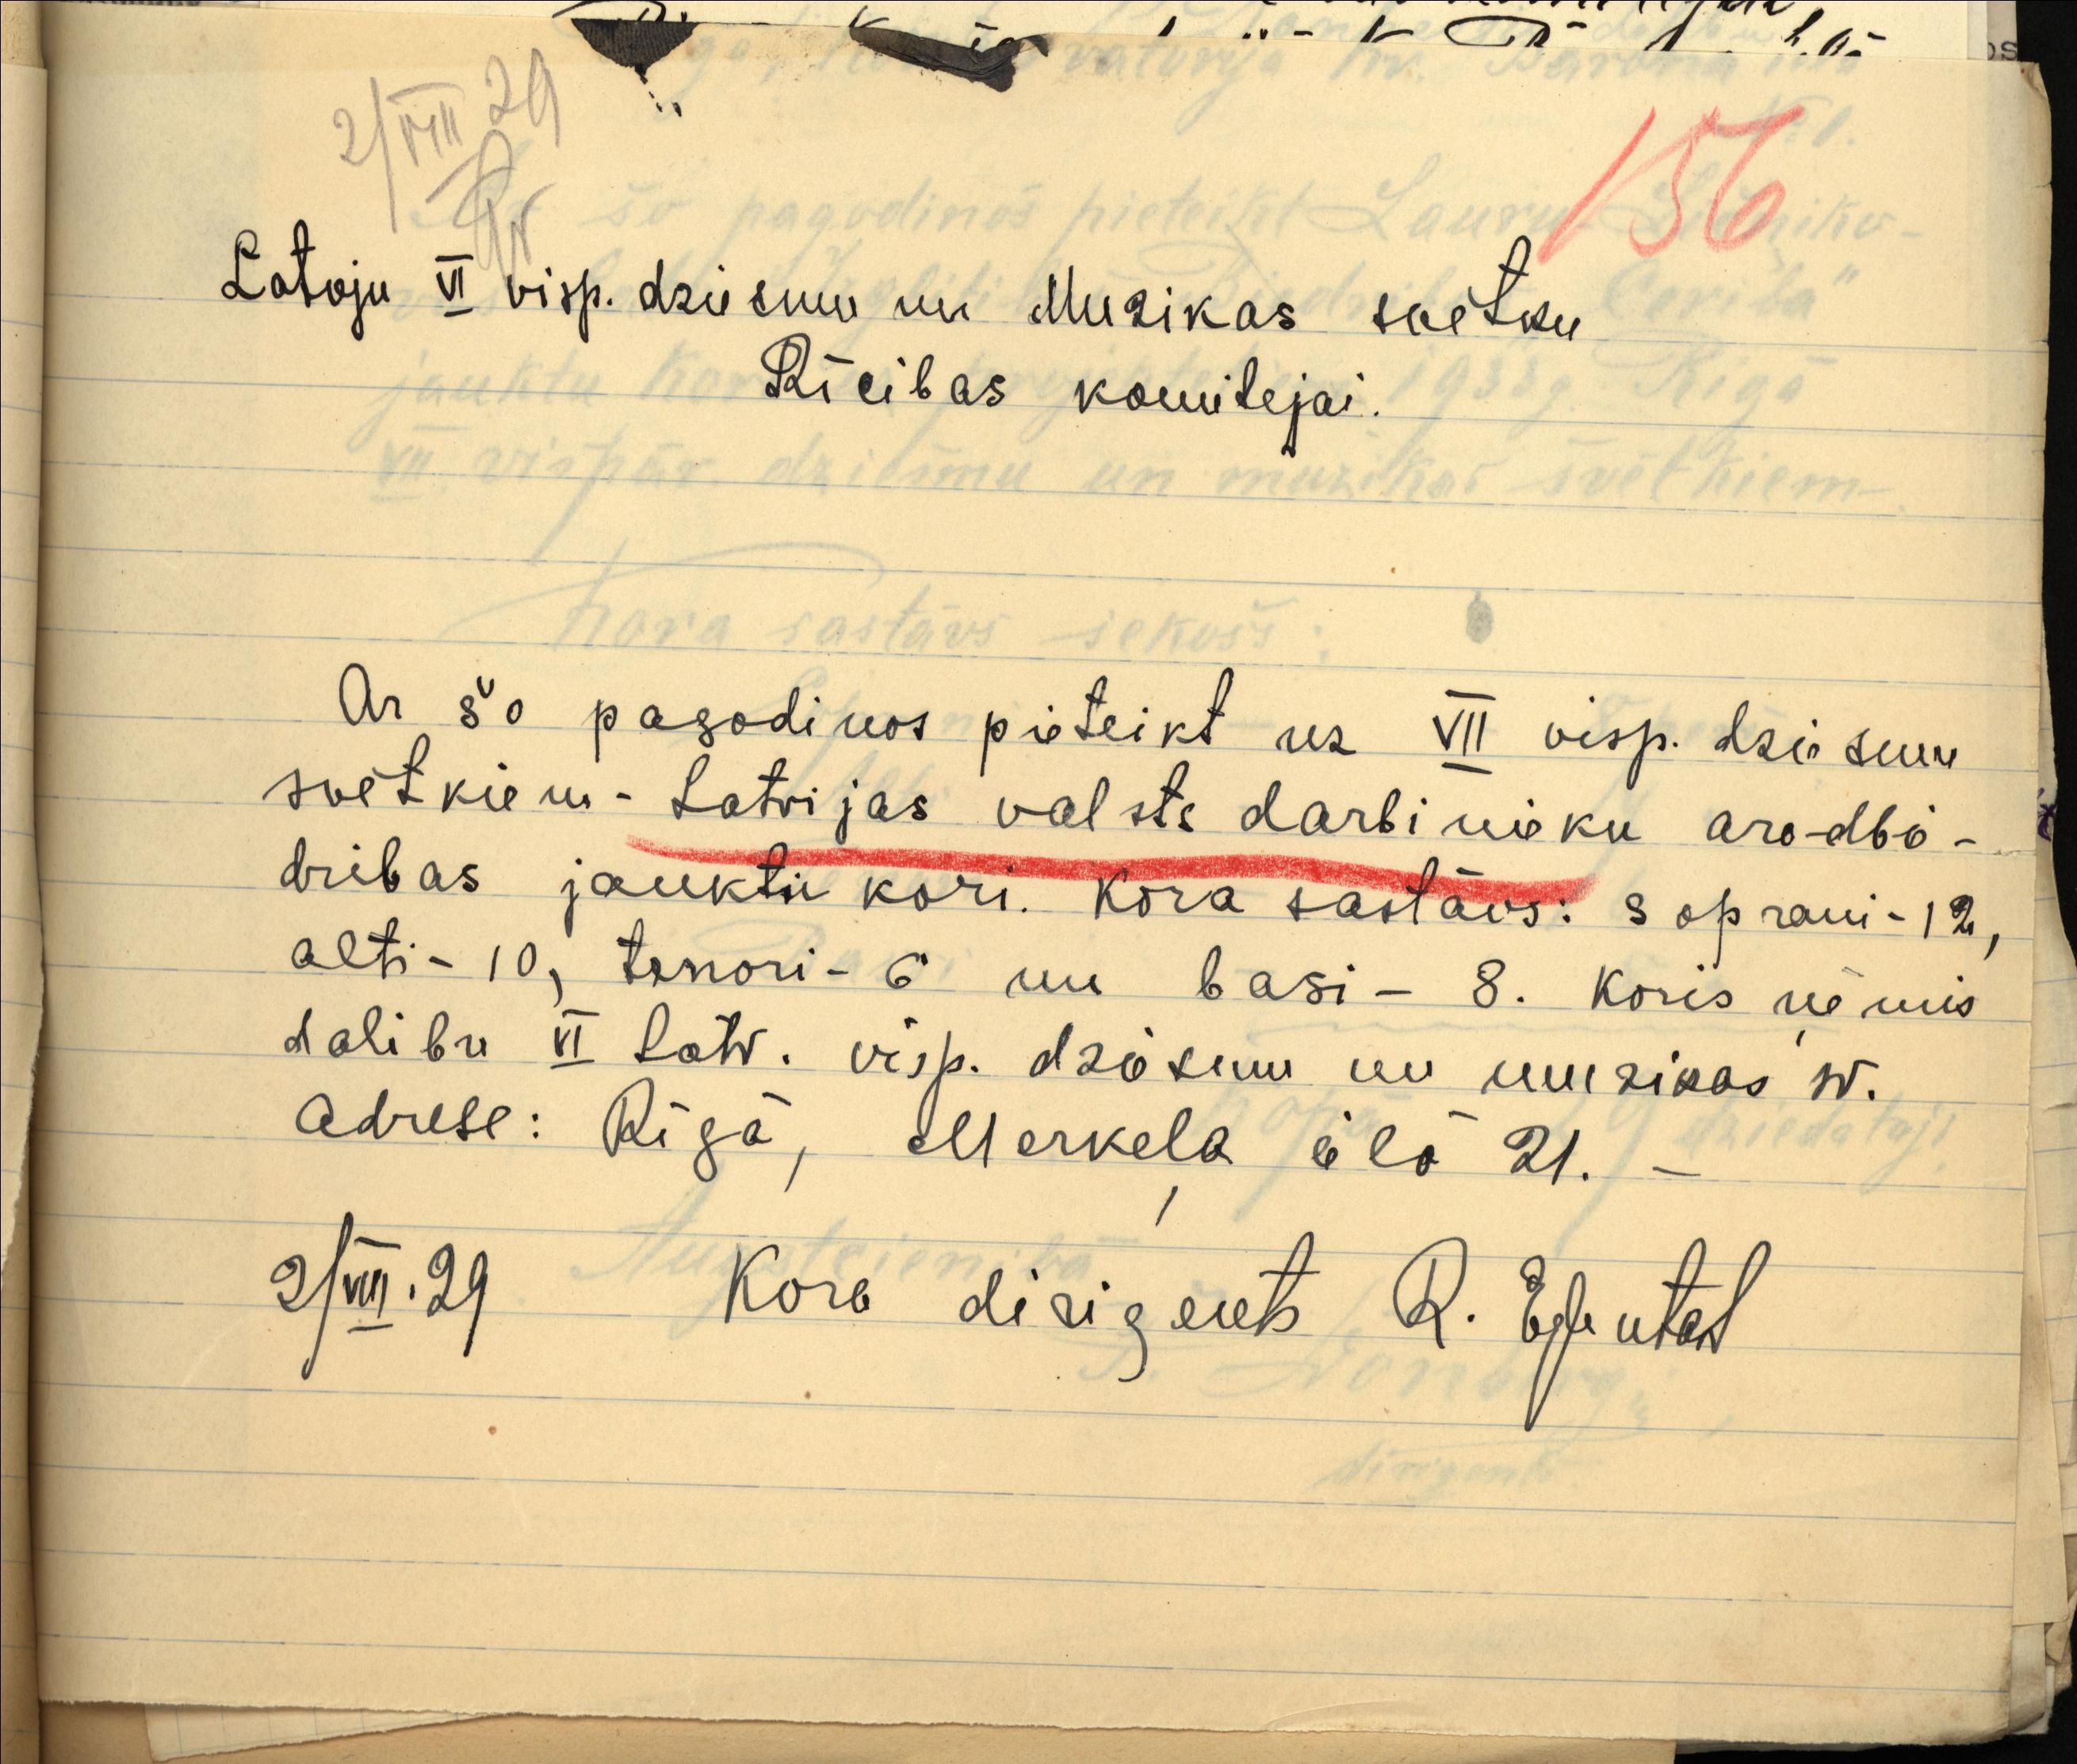 2/VIII 29
156
Latvju VI visp. dziesmu un Muzikas svētku
Rīcibas komitejai.
Ar šo pagodinos pieteikt uz VII visp. dziesmu
svētkiem - Latvijas valsts darbinieku arodbie-
dribas jauktu kori. Kora sastāvs: soprani - 12,
alti - 10, tenori - 6 un basi - 8. Koris ņēmis
dalibu VI Latv. visp. dziesmu un muzikas sv.
Adrese: Rīgā, Merķeļa ielā 21. —
2/VIII. 29 Kora dirigents R.